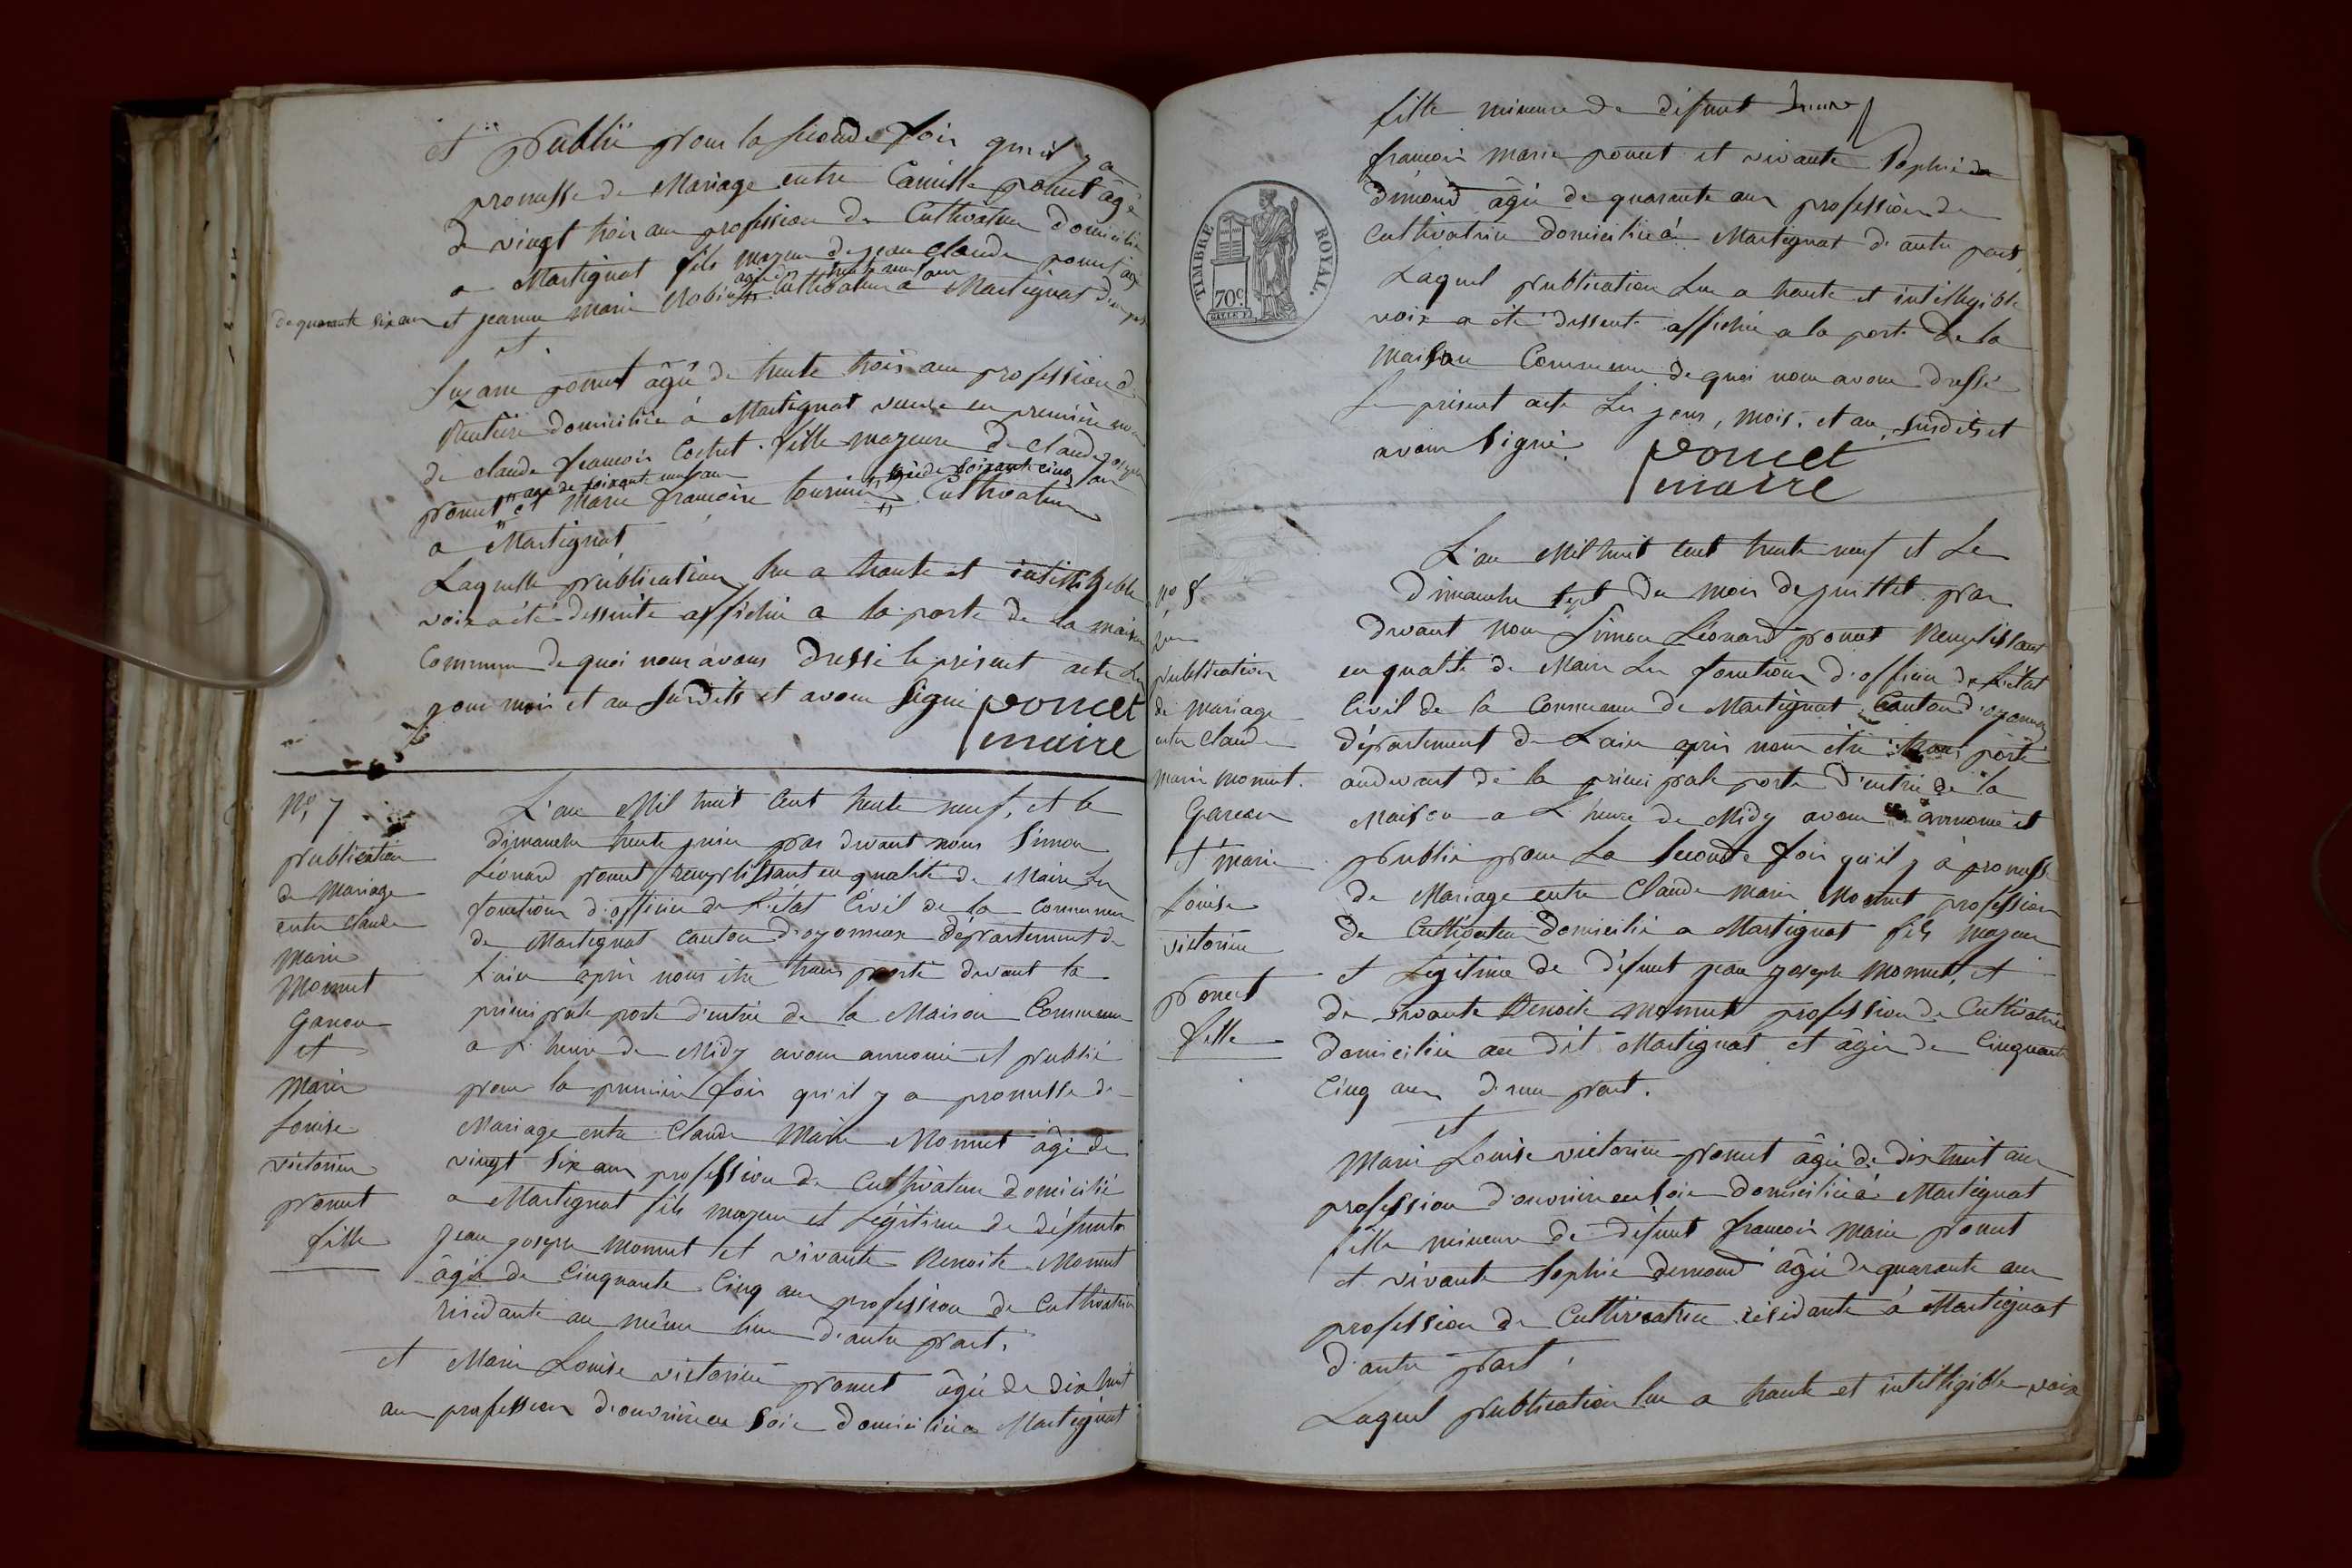 et Publié pour la seconde fois qu'il y a
promesse de Mariage entre Camille poncet âgé
de vingt trois ans profession de Cultivateur domicilié
a Martignat fils majeur de jean claude poncet agé
de quarante six ans et jeanne marie âgée de trente neuf ans Cultivateur a Martignat d'une part
et
Suzane poncet âgée de trente trois ans profession de
Rentière domiciliée à Martignat veuve en première
de claude francois Cochet fille majeure de Claude joseph
poncet age de soixante neuf ans et Marie francoise âgée de soixante cinq ans Cultivateur
a Martignat
Laquelle publication lue a haute et intelligeble
voix a été dessuite affichée a la porte de la maison
Commune de quoi nous avons dressé le présent acte les
jour mois et an susdits et avons signé poncet
maire
N° 7
publication
de Mariage
entre Claude
Marie
Monnet
Garcon
et
Marie
Louise
victorine
poncet
fille
L'an Mil huit Cent trente neuf, et le
dimanche trente juin par devant nous Simon
Léonard poncet remplissant en qualité de Maire les
fonctions d'officier de L'état Civil de la Commune
de Martignat Canton d'oyonnax département de
L'ain après nous être transporté devant la
principale porte d'entrée de la Maison Commune
a L'heure de Midy avons annoncé et publié
pour la première fois qu'il y a promesse de
Mariage entre Claude Marie Monnet âgé de
vingt six ans profession de Cultivateur domicilié
a Martignat fils majeur et Légitime de défunts
Jean joseph Monnet et vivante Benoite Monnet
âgée de Cinquante Cinq ans profession de Cultivatrice
résidante au même lieu d'autre part.
et Marie Louise victorine poncet âgée de dix huit
ans profession d'ouvrière en Soie domiciliée a Martignat
fille mineure de défunt
francois marie poncet et vivante Sophie de
dimond âgée de quarante ans profession de
Cultivatrice domiciliée à Martignat d'autre part,
Laquel publication Lue a haute et intelligible
voix a été dessuite affichée a la porte De la
Maison Commune de quoi nous avons dressé
Le présent acte Les jour, mois, et an, susdits et
avons signé. poncet
maire
TIMBRE ROYAL.
70c
N° 8
2me
publication
de mariage
entre Claude
marie monnet
Garcon
et marie
Louise
victorine
poncet
fille
L'an Mil huit Cent trente neuf et Le
dimanche sept du mois de juillet par
devant nous Simon Léonard poncet Remplissant
en qualité de Maire Les fonctions d'officier de L'état
Civil de la Commune de Martignat Canton d'oyonnax
département de L'ain après nous être transporté
audevant de la principale porte d'entrée de la
Maison a L'heure de Midy avons annoncé et
publié pour La seconde fois qu'il y à promesse
de Mariage entre Claude Marie Monnet profession
de Cultivateur Domicilié a Martignat fils majeur
et Légitime de défunt jean joseph Monnet, et
de vivante Benoite Monnet profession de Cultivatrice
domiciliée au dit Martignat et âgée de Cinquante
Cinq ans d'une part.
et
Marie Louise victorine poncet âgée de dix huit ans
profession d'ouvrière en Soie domiciliée à Martignat
fille mineure de défunt francois marie poncet
et vivante Sophie demond âgée de quarante ans
profession de Cultivatrice résidante à Martignat
d'autre part,
Laquel publication lue a haute et intelligible voix